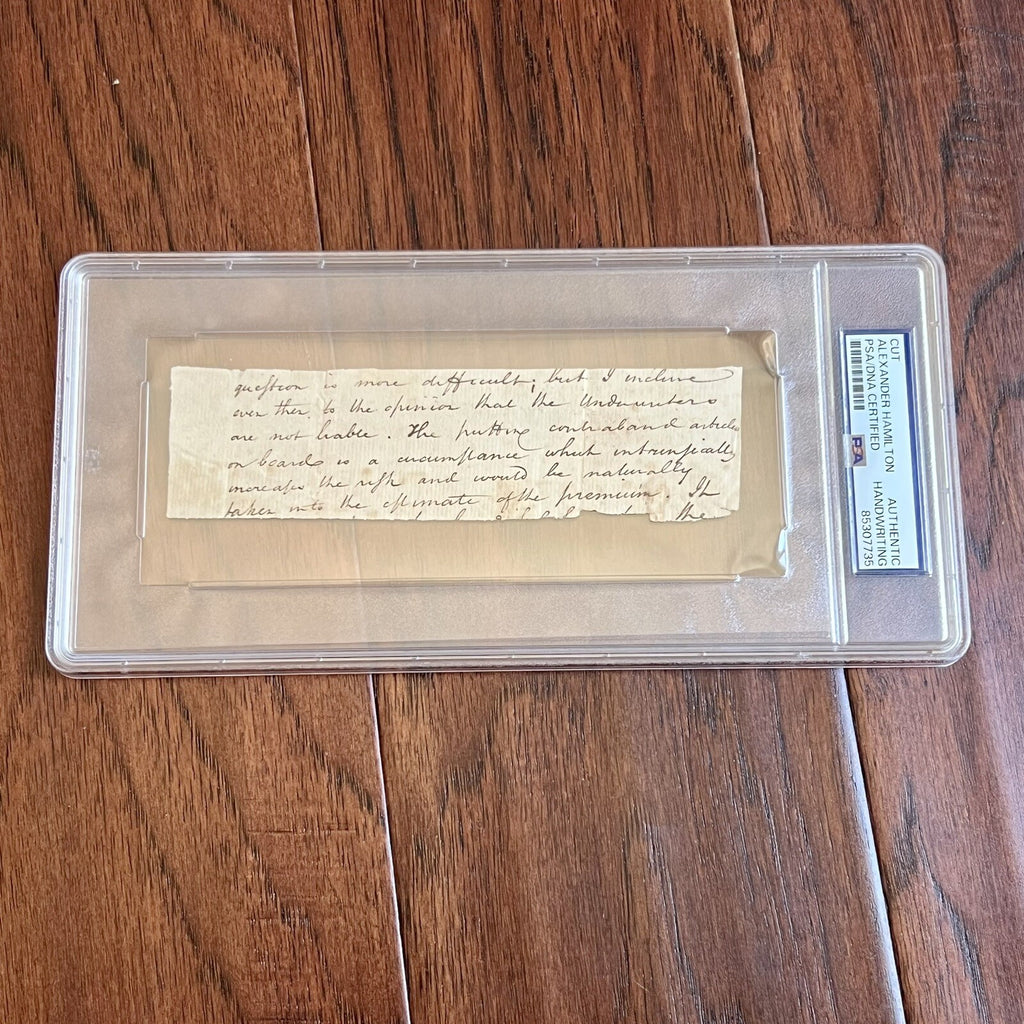 question is more difficult; but I incline
even then to the opinion that the Underwriters
are not liable. The putting contraband articles
on board is a circumstance which intrinsically
increases the risk and would be naturally
taken into the estimate of the premium. It
the
CUT
ALEXANDER HAMILTON
PSA/DNA CERTIFIED
PSA
AUTHENTIC
HANDWRITING
85307735